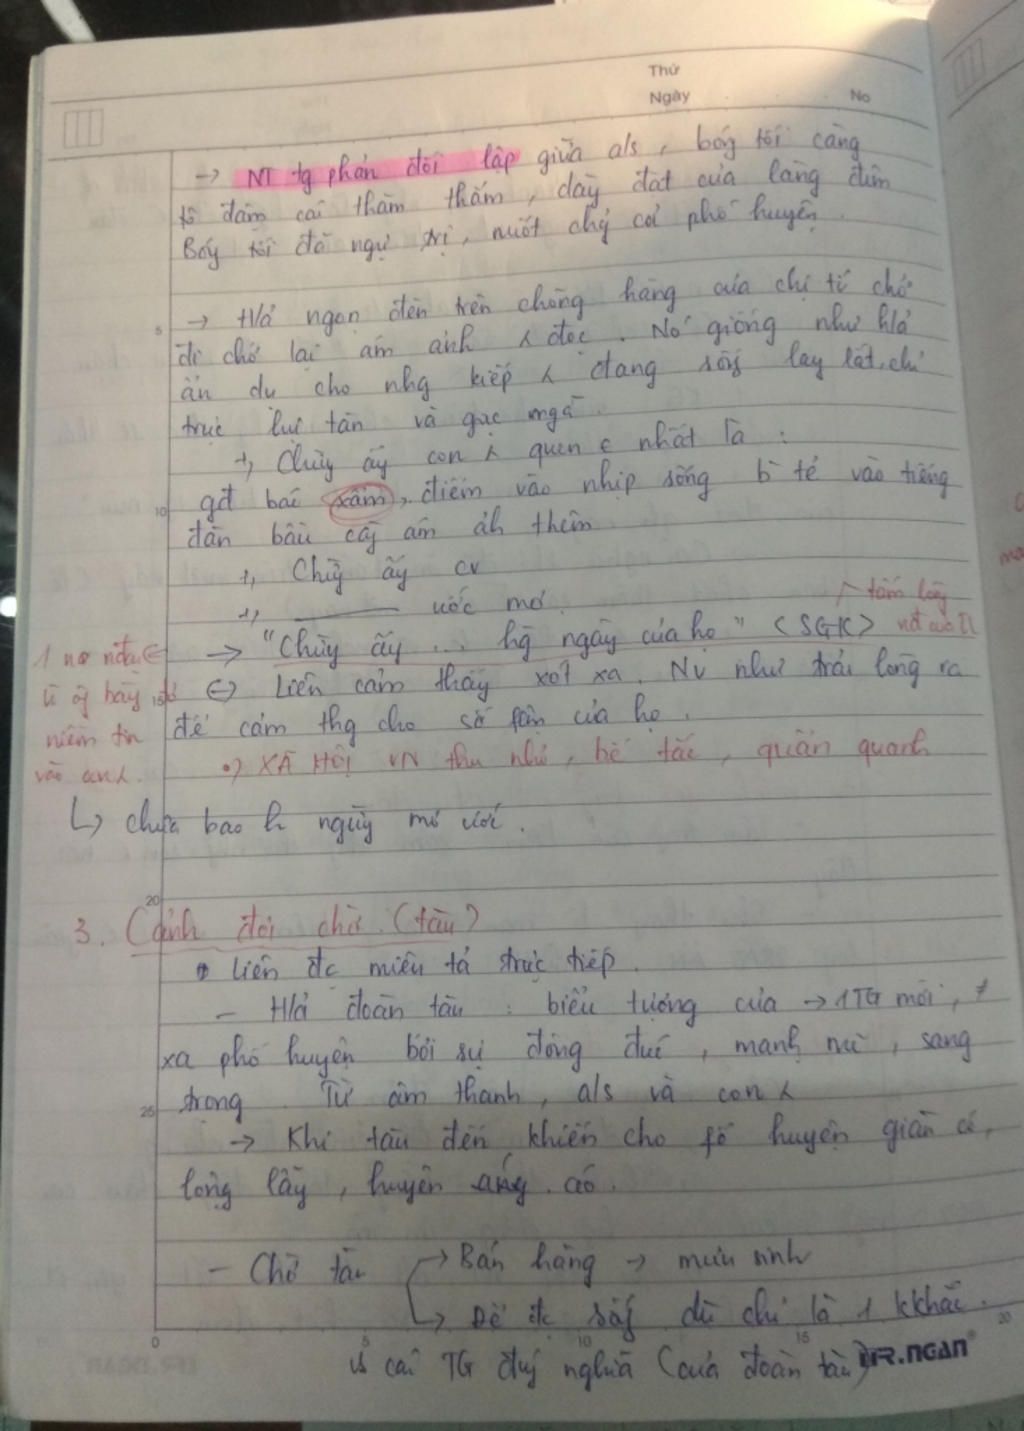 Thứ
Ngày No
→ NT tg phản đối lập giữa als, bóg tối càng
tô đậm cái thăm thẳm, dày đặt của làng đêm
Bóg tối đã ngự trị, nuốt chửg cả phố huyện.
→ H/ả ngọn đèn trên chõng hàng của chị tí chở
đi chở lại ám ảnh λ đọc. Nó giống như h/ả
ẩn dụ cho nhg kiếp λ đang sốg lay lắt, chỉ
trực lụi tàn và gục ngã.
+, Chừg ấy con λ quen c nhất là :
gđ bác xẩm, điểm vào nhịp sống bì tẻ vào tiếng
đàn bầu càg ám ảh thêm
+, Chừg ấy cv
+, ước mơ.
tấm lòg
→ "Chừg ấy ... hg ngày của họ" (SGK)
↔ Liên cảm thấy xót xa. NV như trải lòng ra
để cảm thg cho số fận của họ.
niềm tin
vào an λ.
•) XÃ HỘI VN thu nhỏ, bế tắc, quẩn quanh
↳ chưa bao h ngừg mơ ước.
3. Cảnh đợi chờ (tàu)
Liên đc miêu tả trực tiếp.
- H/ả đoàn tàu : biểu tượng của → 1 TG mới, ≠
xa phố huyện bởi sự đông đúc, mạnh mẽ, sang
trọng. Từ âm thanh, als và con λ
→ Khi tàu đến, khiến cho fố huyện giàn cỏ,
lộng lẫy, huyên áng. áo.
- Chờ tàu → Bán hàng → mưu sinh
↳ Để đc sốg dù chỉ là 1 kkhắc.
vs cái TG đúg nghĩa (của đoàn tàu)
MR.NGAN